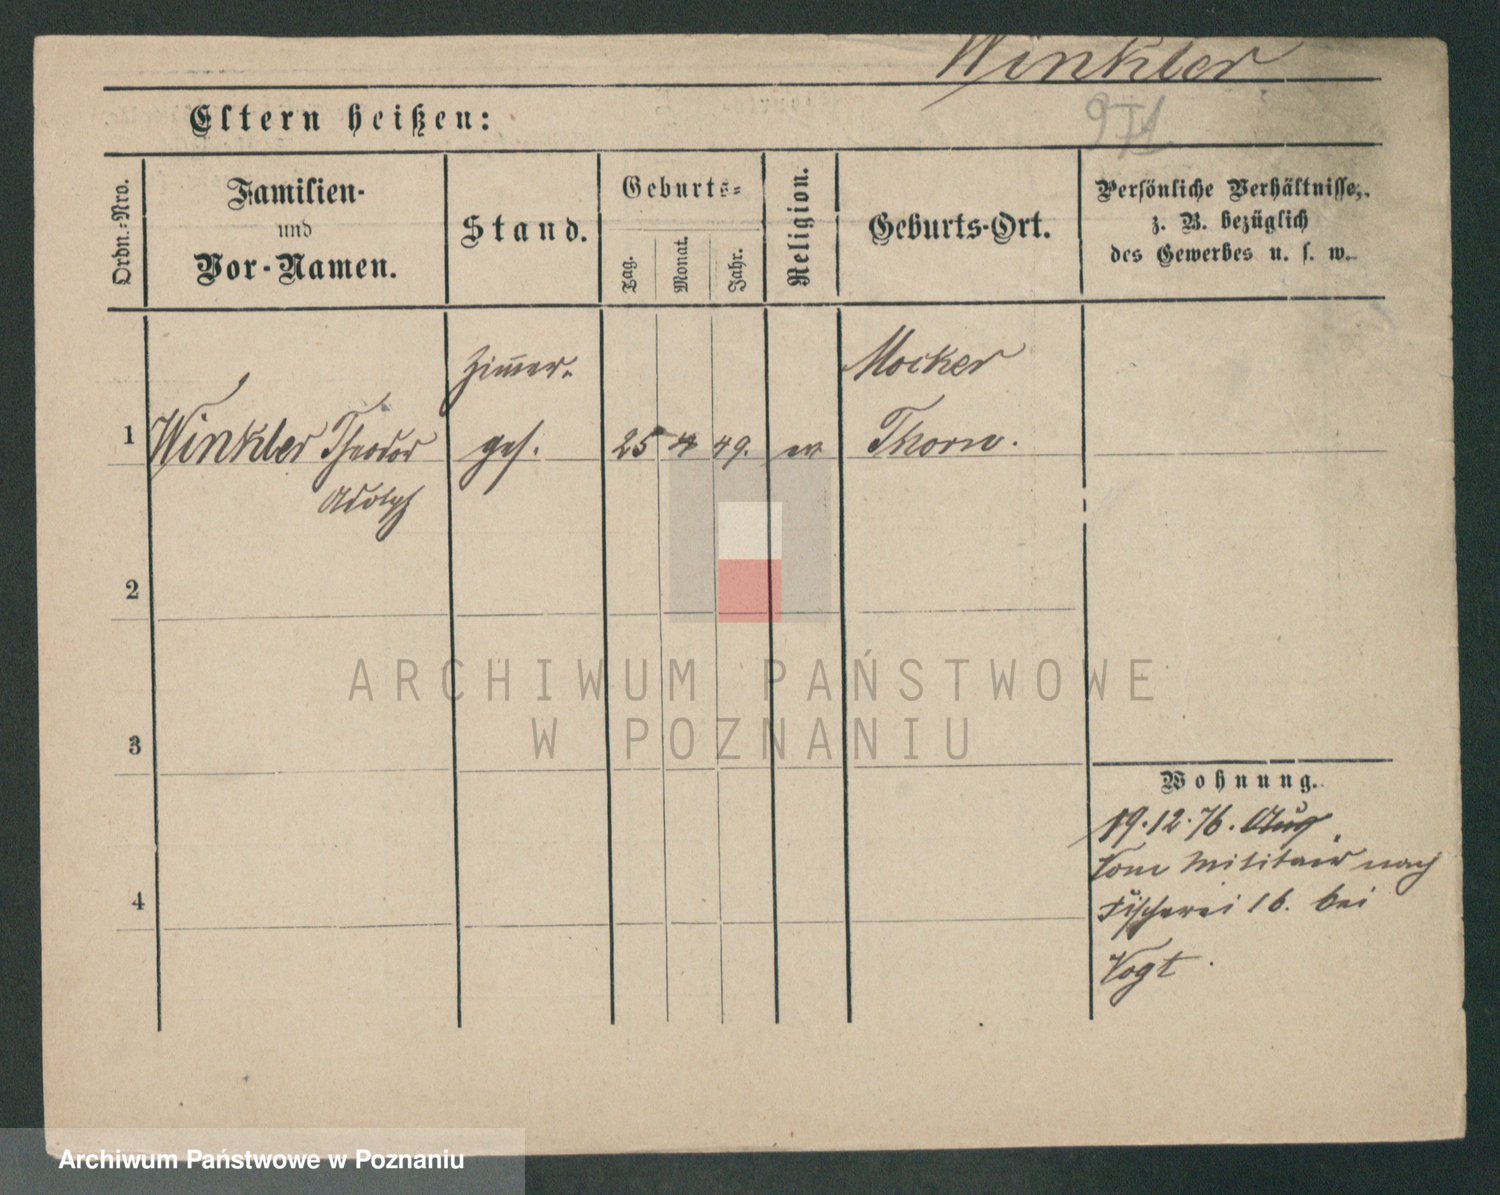 Winkler
Eltern heißen:
Ordn.-Nro.
Familien-
und
Vor-Namen.
Stand.
Geburts-
Tag.
Monat.
Jahr.
Religion.
Geburts-Ort.
Persönliche Verhältnisse,
z. B. bezüglich
des Gewerbes u. s. w.
Zim̅er-
Mocker
1 Winkler Theodor ges. 25 4 49. ev Thorn.
Adolph
2
3
4
Wohnung.
19.12.76.
Vom Militair nach
Fischerei 16. bei
Vogt.
ARCHIWUM PAŃSTWOWE
W POZNANIU
Archiwum Państwowe w Poznaniu